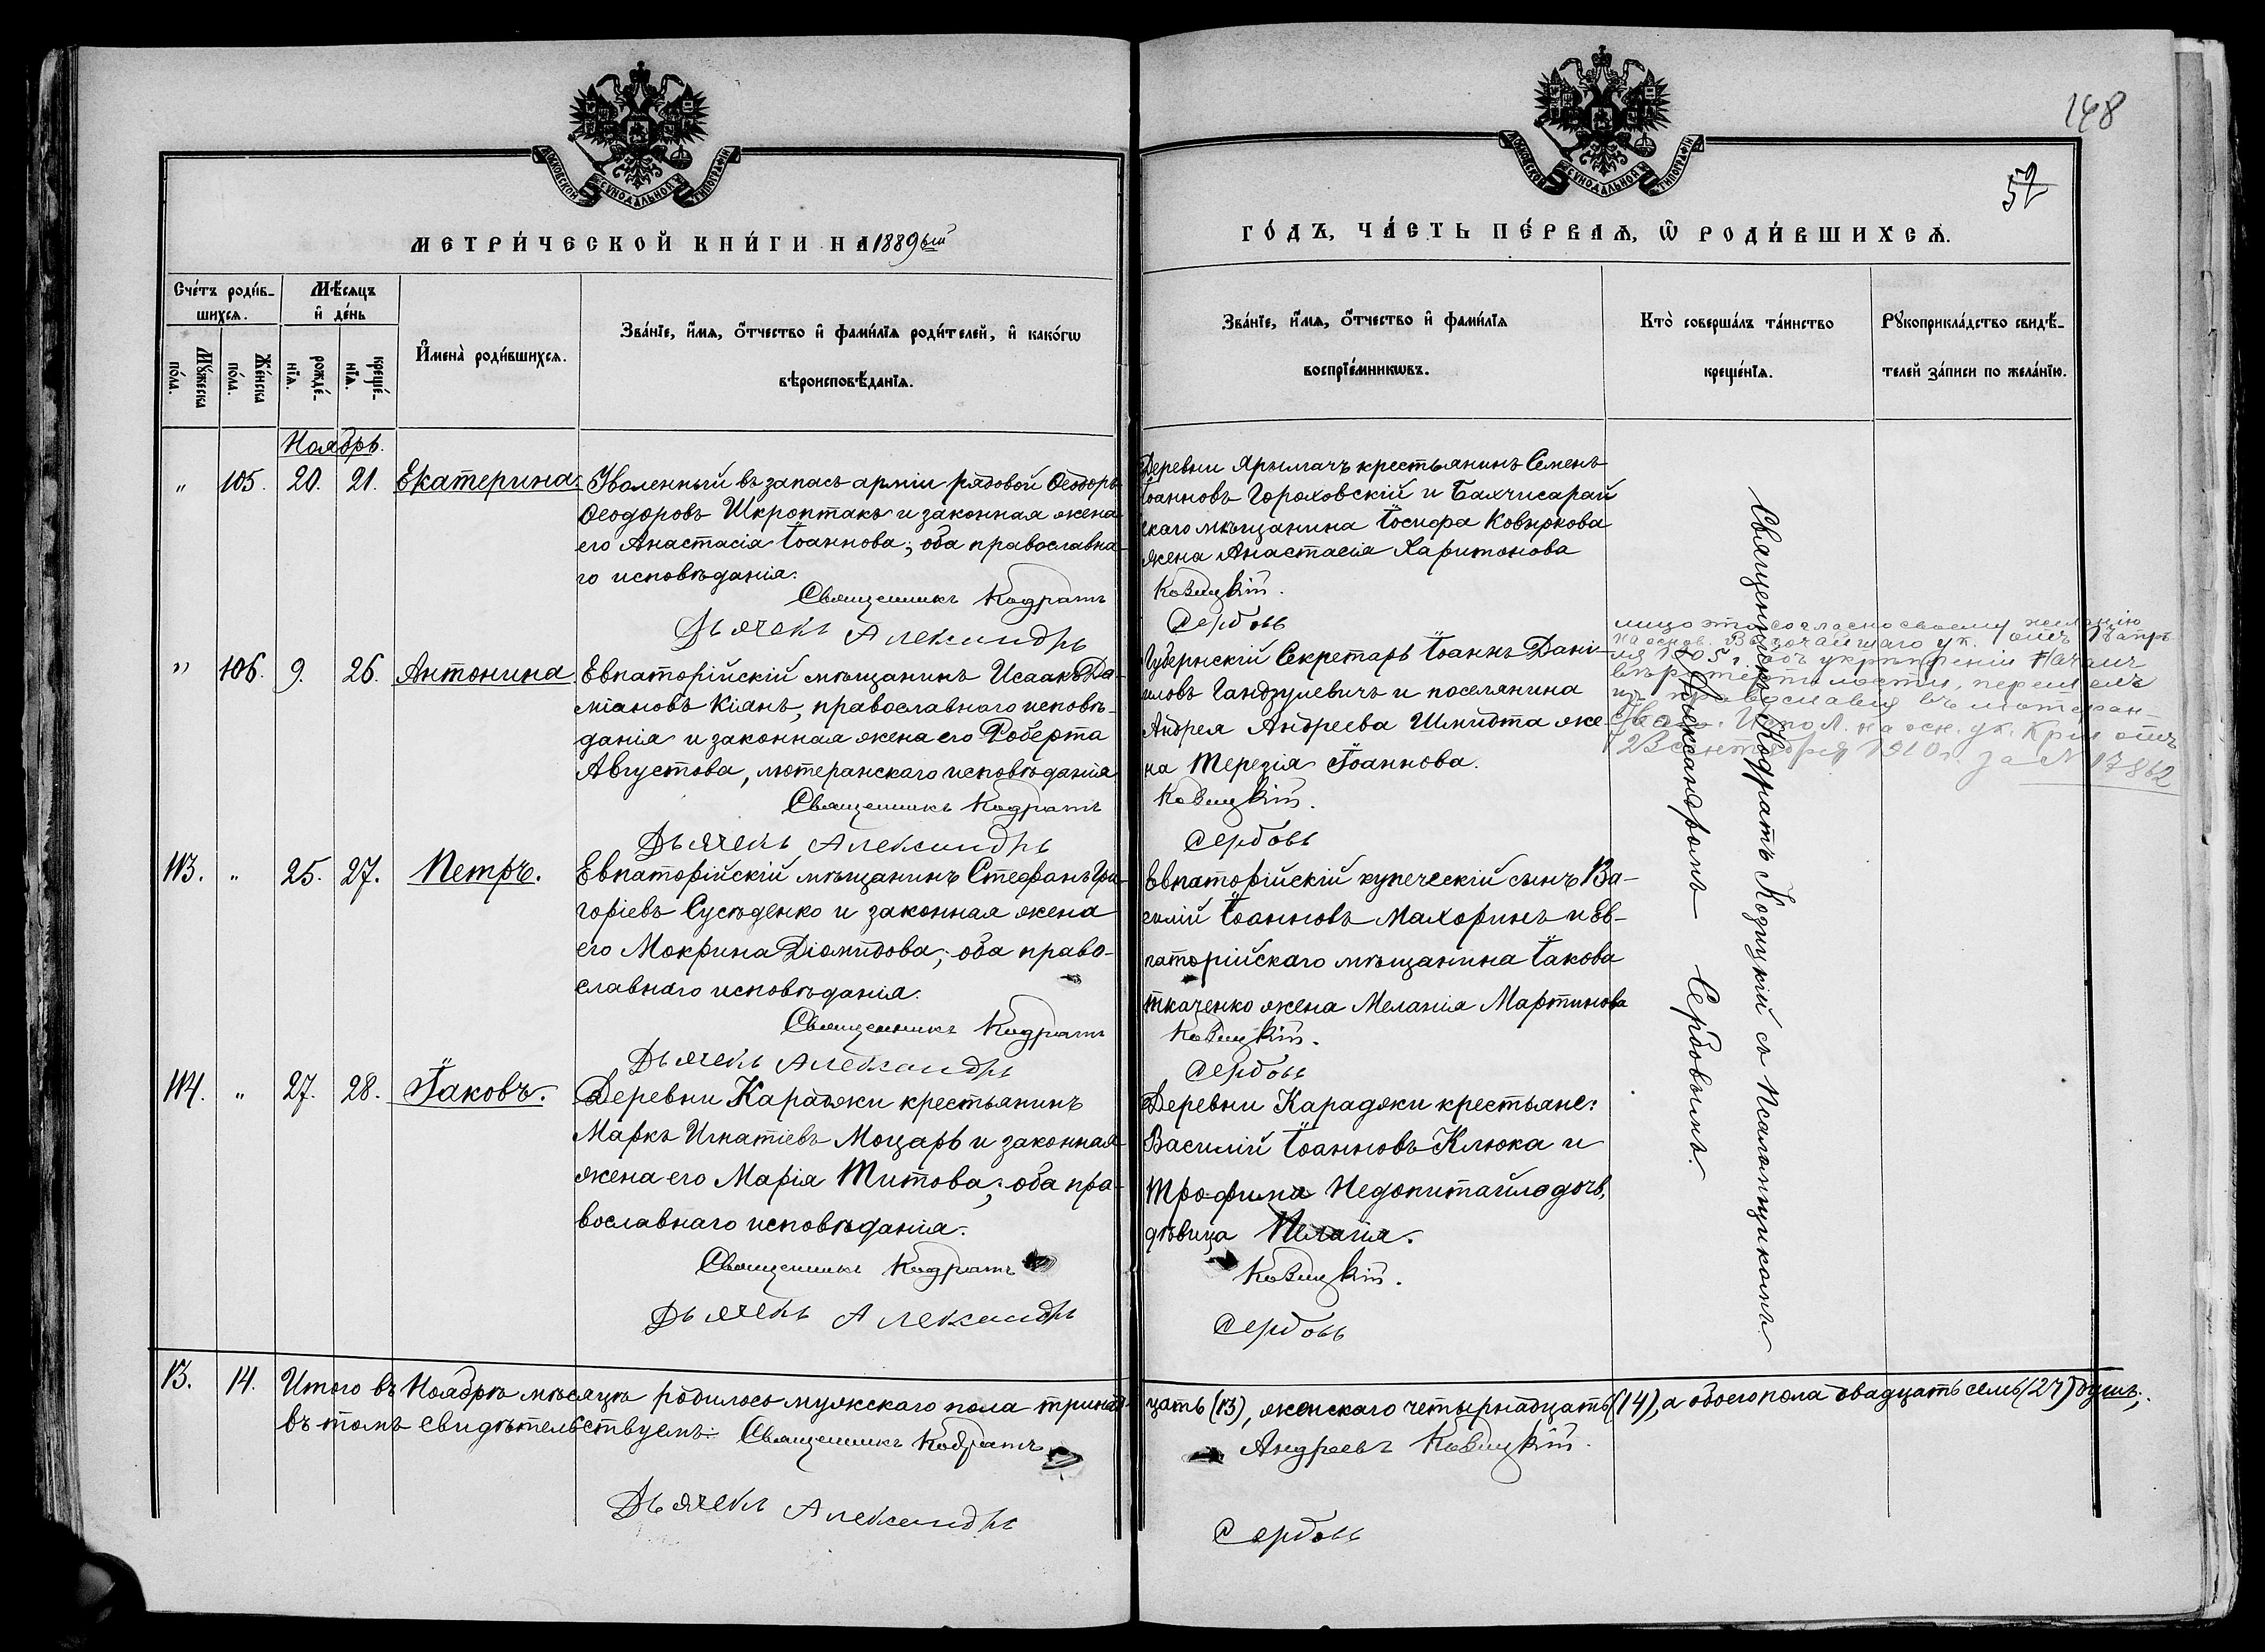 148
52
МОСКОВСКОЙ СѴНОДАЛЬНОЙ ТИПОГРАФІИ
МОСКОВСКОЙ СѴНОДАЛЬНОЙ ТИПОГРАФІИ
МЕТРИ́ЧЕСКОЙ КНИ́ГИ НА 1889ый
ГО́ДЪ, ЧА́СТЬ ПЕ́РВАѦ, Ѽ РОДИ́ВШИХСѦ.
Сче́тъ роди́в-
шихсѧ.
Мꙋ́жеска
по́ла.
Же́нска
по́ла.
Мѣ́сѧцъ
и҆ де́нь
рожде́-
нїѧ.
креще́-
нїѧ.
И҆мена̀ роди́вшихсѧ.
Зва́нїе, и҆́мѧ, ѻ҆́тчество и҆ фами́лїѧ роди́телей, и҆ како́гѡ
вѣроисповѣ́данїѧ.
Зва́нїе, и҆́мѧ, ѻ҆́тчество и҆ фами́лїѧ
воспрїе́мникѡвъ.
Кто̀ соверша́лъ та́инство
креще́нїѧ.
Рꙋкоприкла́дство свидѣ́-
телей за́писи по жела́нїю.
Ноябрь.
" 105. 20. 21. Екатерина. Уволенный въ запасъ арміи рядовой Ѳеодоръ
Ѳеодоровъ Шкроптакъ и законная жена
его Анастасія Іоаннова; оба православна-
го исповѣданія.
Священникъ Кодратъ
Дьячекъ Александръ
Деревни Ярымачъ крестьянинъ Семенъ
Іоанновъ Гороховскій и Бахчисарай
скаго мѣщанина Іосифа Ковыркова
жена Анастасія Харитонова
Козицкій.
Сербовъ
" 106. 9. 26. Антонина Евпаторійскій мѣщанинъ Исаакъ Да-
міановъ Кіянъ, православнаго исповѣ-
данія и законная жена его Роберта
Августова, лютеранскаго исповѣданія
Священникъ Кодратъ
Дьячекъ Александръ
Губернскій Секретарь Іоаннъ Дані-
иловъ Гандзулевичъ и поселянина
Андрея Андреева Шмидта же-
на Терезія Іоаннова.
Козицкій.
Сербовъ
лицо это согласно своему желанію
на основ. Высочайшаго ук. отъ 17 апрѣ
ля 1905 г. объ укрѣпленіи началъ
вѣротерпимости, перешелъ
изъ православія въ лютеран
ство.
за № 17862
113. " 25. 27. Петръ. Евпаторійскій мѣщанинъ Стефанъ Гри-
горіевъ Сусѣденко и законная жена
его Мокрина Діомидова; оба право-
славнаго исповѣданія.
Священникъ Кодратъ
Дьячекъ Александръ
Евпаторійскій купеческій сынъ Ва-
силій Іоанновъ Махоринъ и Ев-
паторійскаго мѣщанина Іакова
Ткаченко жена Меланія Мартинова
Козицкій.
Сербовъ
114. " 27. 28. Іаковъ. Деревни Караджи крестьянинъ
Маркъ Игнатіевъ Моцарь и законная
жена его Марія Титова; оба пра-
вославнаго исповѣданія.
Священникъ Кодратъ
Дьячекъ Александръ
Деревни Караджи крестьяне:
Василій Іоанновъ Клюка и
Трофима Недопитайло дочь,
дѣвица Пелагія.
Козицкій.
Сербовъ
Священникъ Кодратъ Козицкій съ Псаломщикомъ
Александромъ Сербовымъ.
13. 14. Итого въ Ноябрѣ мѣсяцѣ родилось мужскаго пола тринад-
цать (13), женскаго четырнадцать (14), а обоего пола двадцать семь (27) душъ;
въ томъ свидѣтельствуемъ: Священникъ Кодратъ
Андреевъ Козицкій.
Дьячекъ Александръ
Сербовъ